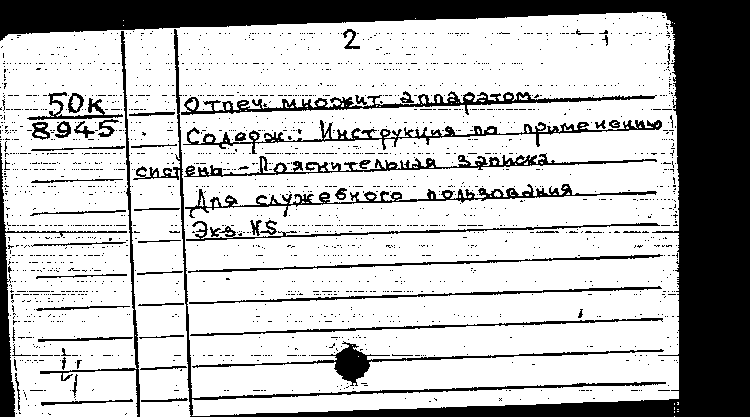 2
50к
8945
Отпеч. множит. аппаратом.
Содерж.: Инструкция по применению
системы. - Пояснительная записка.
Для служебного пользования.
Экз. №5.
4